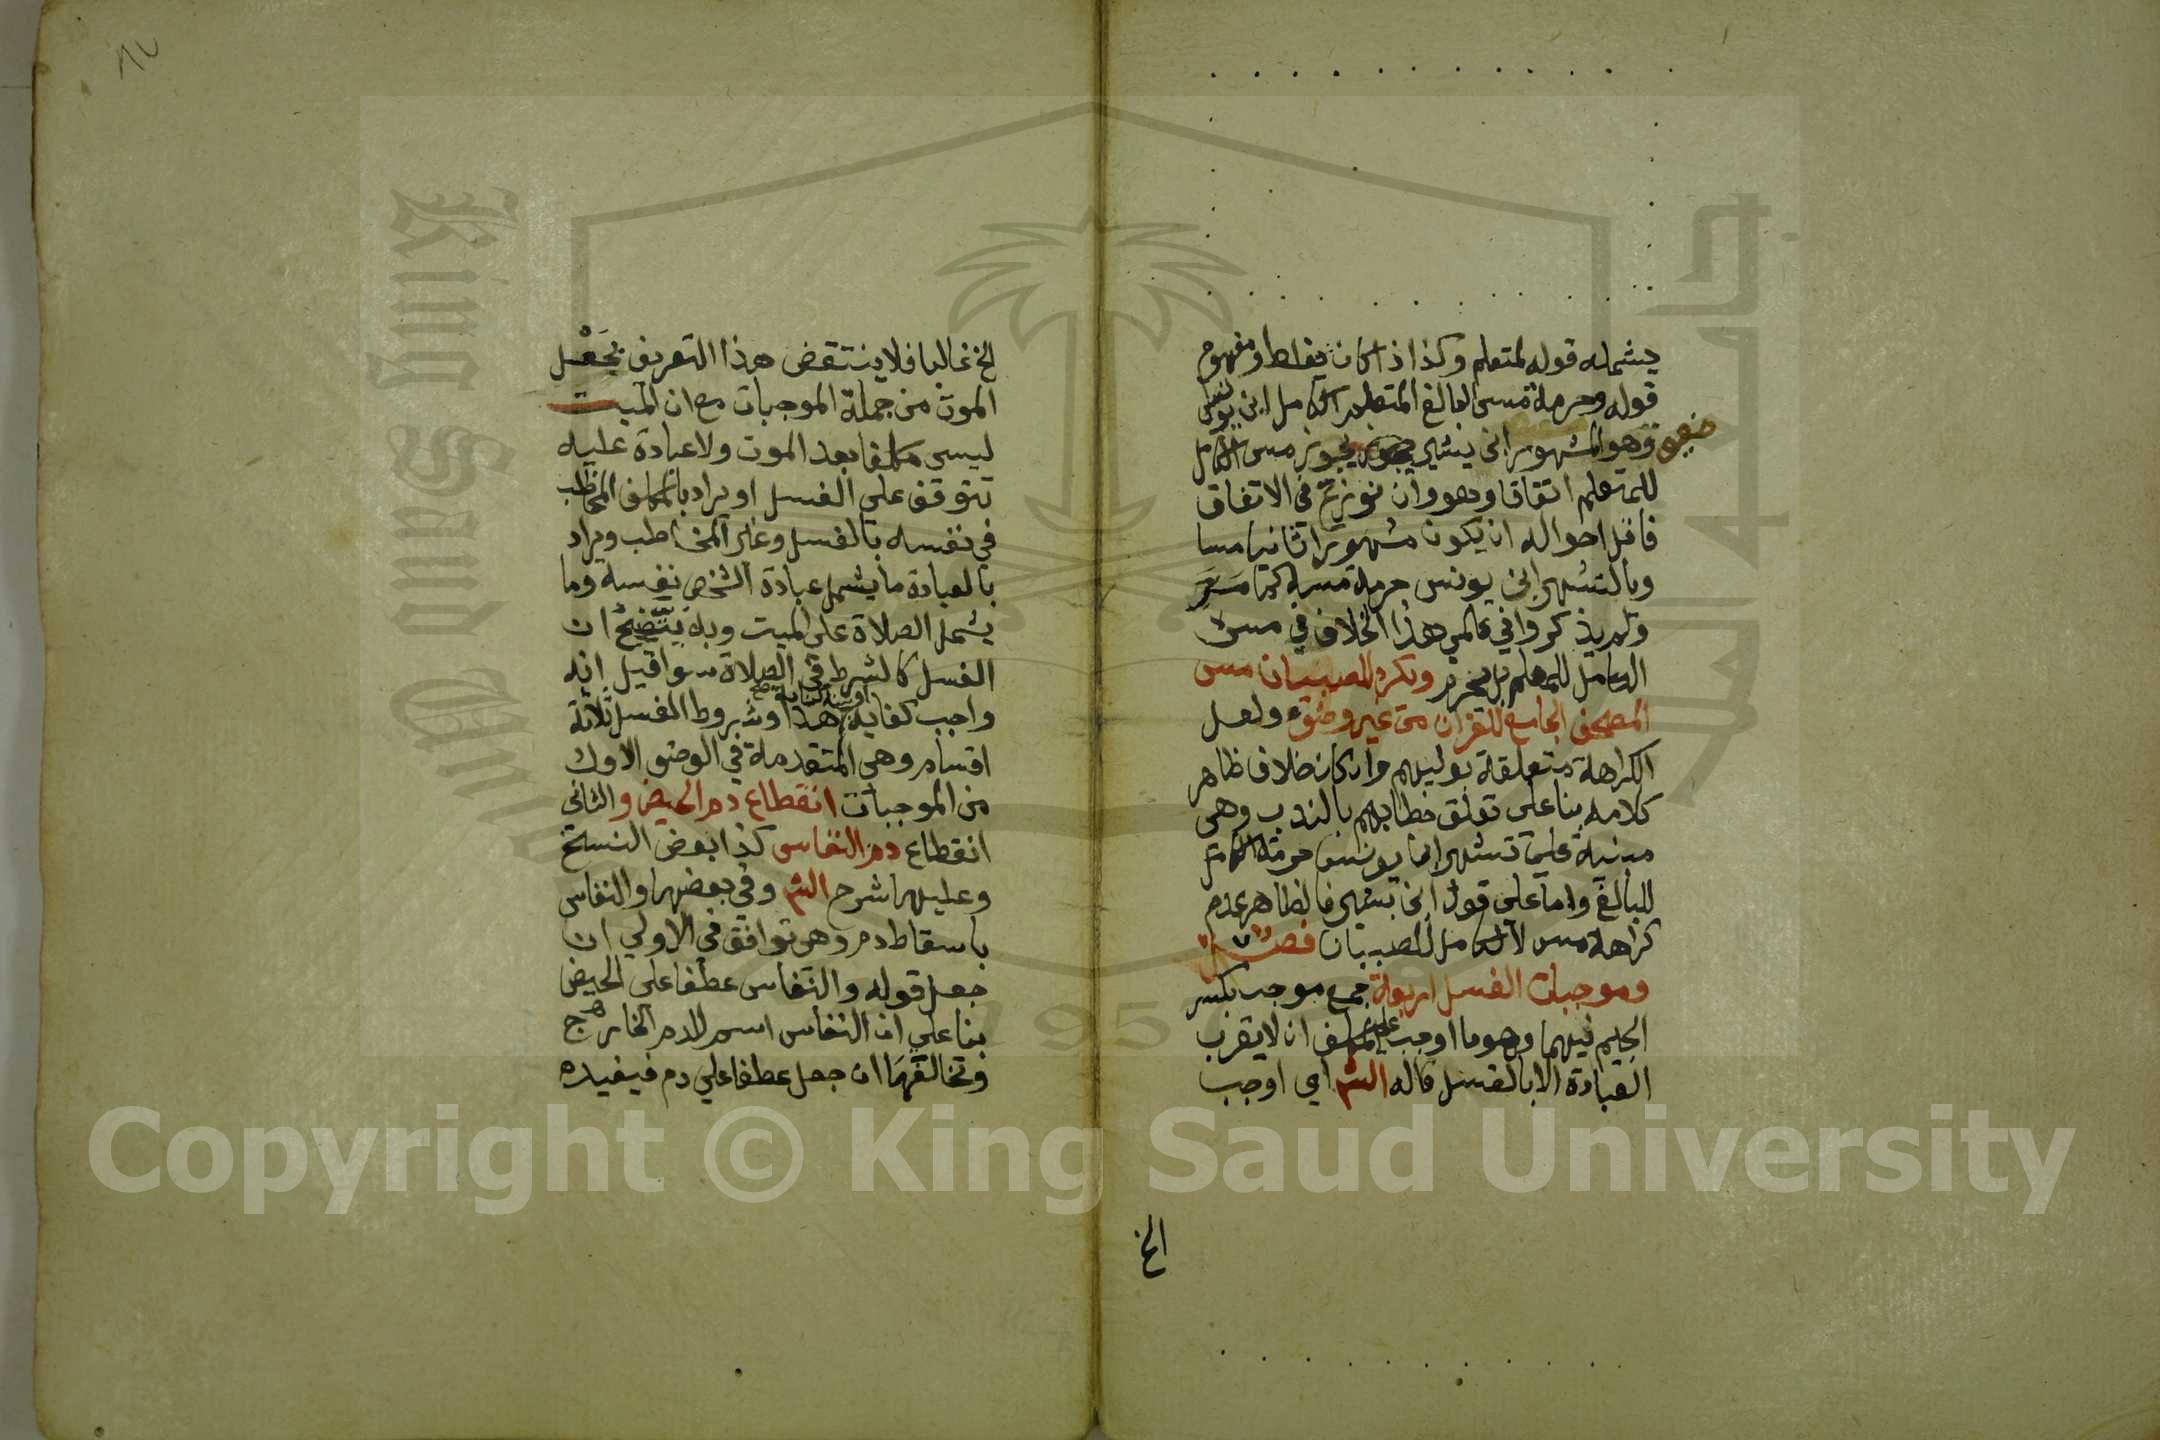 يشمله قوله لمتعلم وكذا اذا كان يغلط ومفهوم
قوله وحرمة مس البالغ المتطهر الكامل ابن يونس
وهو المشهور ابن بشير يجوز مس الكامل
للمتعلم اتفاقا وهو وان نوزع في الاتفاق
فاقل احواله ان يكون مشهورا ثانيا مسا
وبالتشهير ابن يونس حرمة مسه كما مر
ولم يذكروا في عالمي هذا الخلاف في مس
الكامل للمعلم بل يحرم ويكره للصبيان مس
المصحف الجامع للقران من غير وضوء ولعل
الكراهة متعلقة بوليهم وان كان خلاف ظاهر
كلامه بنا على تعلق خطابهم بالندب وهي
مبنية على تشهير ابن يونس حرمة الكامل
للبالغ واما على قول ابن بشير فالظاهر عدم
كراهة مس الكامل للصبيان فصل
وموجبات الغسل اربعة جمع موجب بكسر
الجيم فيهما وهو ما اوجب على المكلف ان لا يقرب
العبادة الا بالغسل قاله الشم اي اوجب
الخ
الخ غالبا فلا ينتقض هذا التعريف بجعل
الموت من جملة الموجبات مع ان الميت
ليس مكلفا بعد الموت ولا عبادة عليه
تتوقف على الغسل او يراد بالمكلف المخاطب
في نفسه بالغسل وغير المخاطب ويراد
بالعبادة ما يشمل عبادة الشخص نفسه وما
يشمل الصلاة على الميت وبه يتضح ان
الغسل كالشرط في الصلاة سوا قيل انه
واجب كفاية او سنة كفاية صح هذا وشروط الغسل ثلاثة
اقسام وهي المتقدمة في الوضو الاول
من الموجبات انقطاع دم الحيض والثاني
انقطاع دم النفاس كذا بعض النسخ
وعليها شرح الشم وفي بعضها والنفاس
باسقاط دم وهي توافق في الاولي ان
جعل قوله والنفاس عطفا على الحيض
بنا علي ان النفاس اسم للدم الخارج
وتخالفها ان جعل عطفا علي دم فيفيده
Copyright © King Saud University